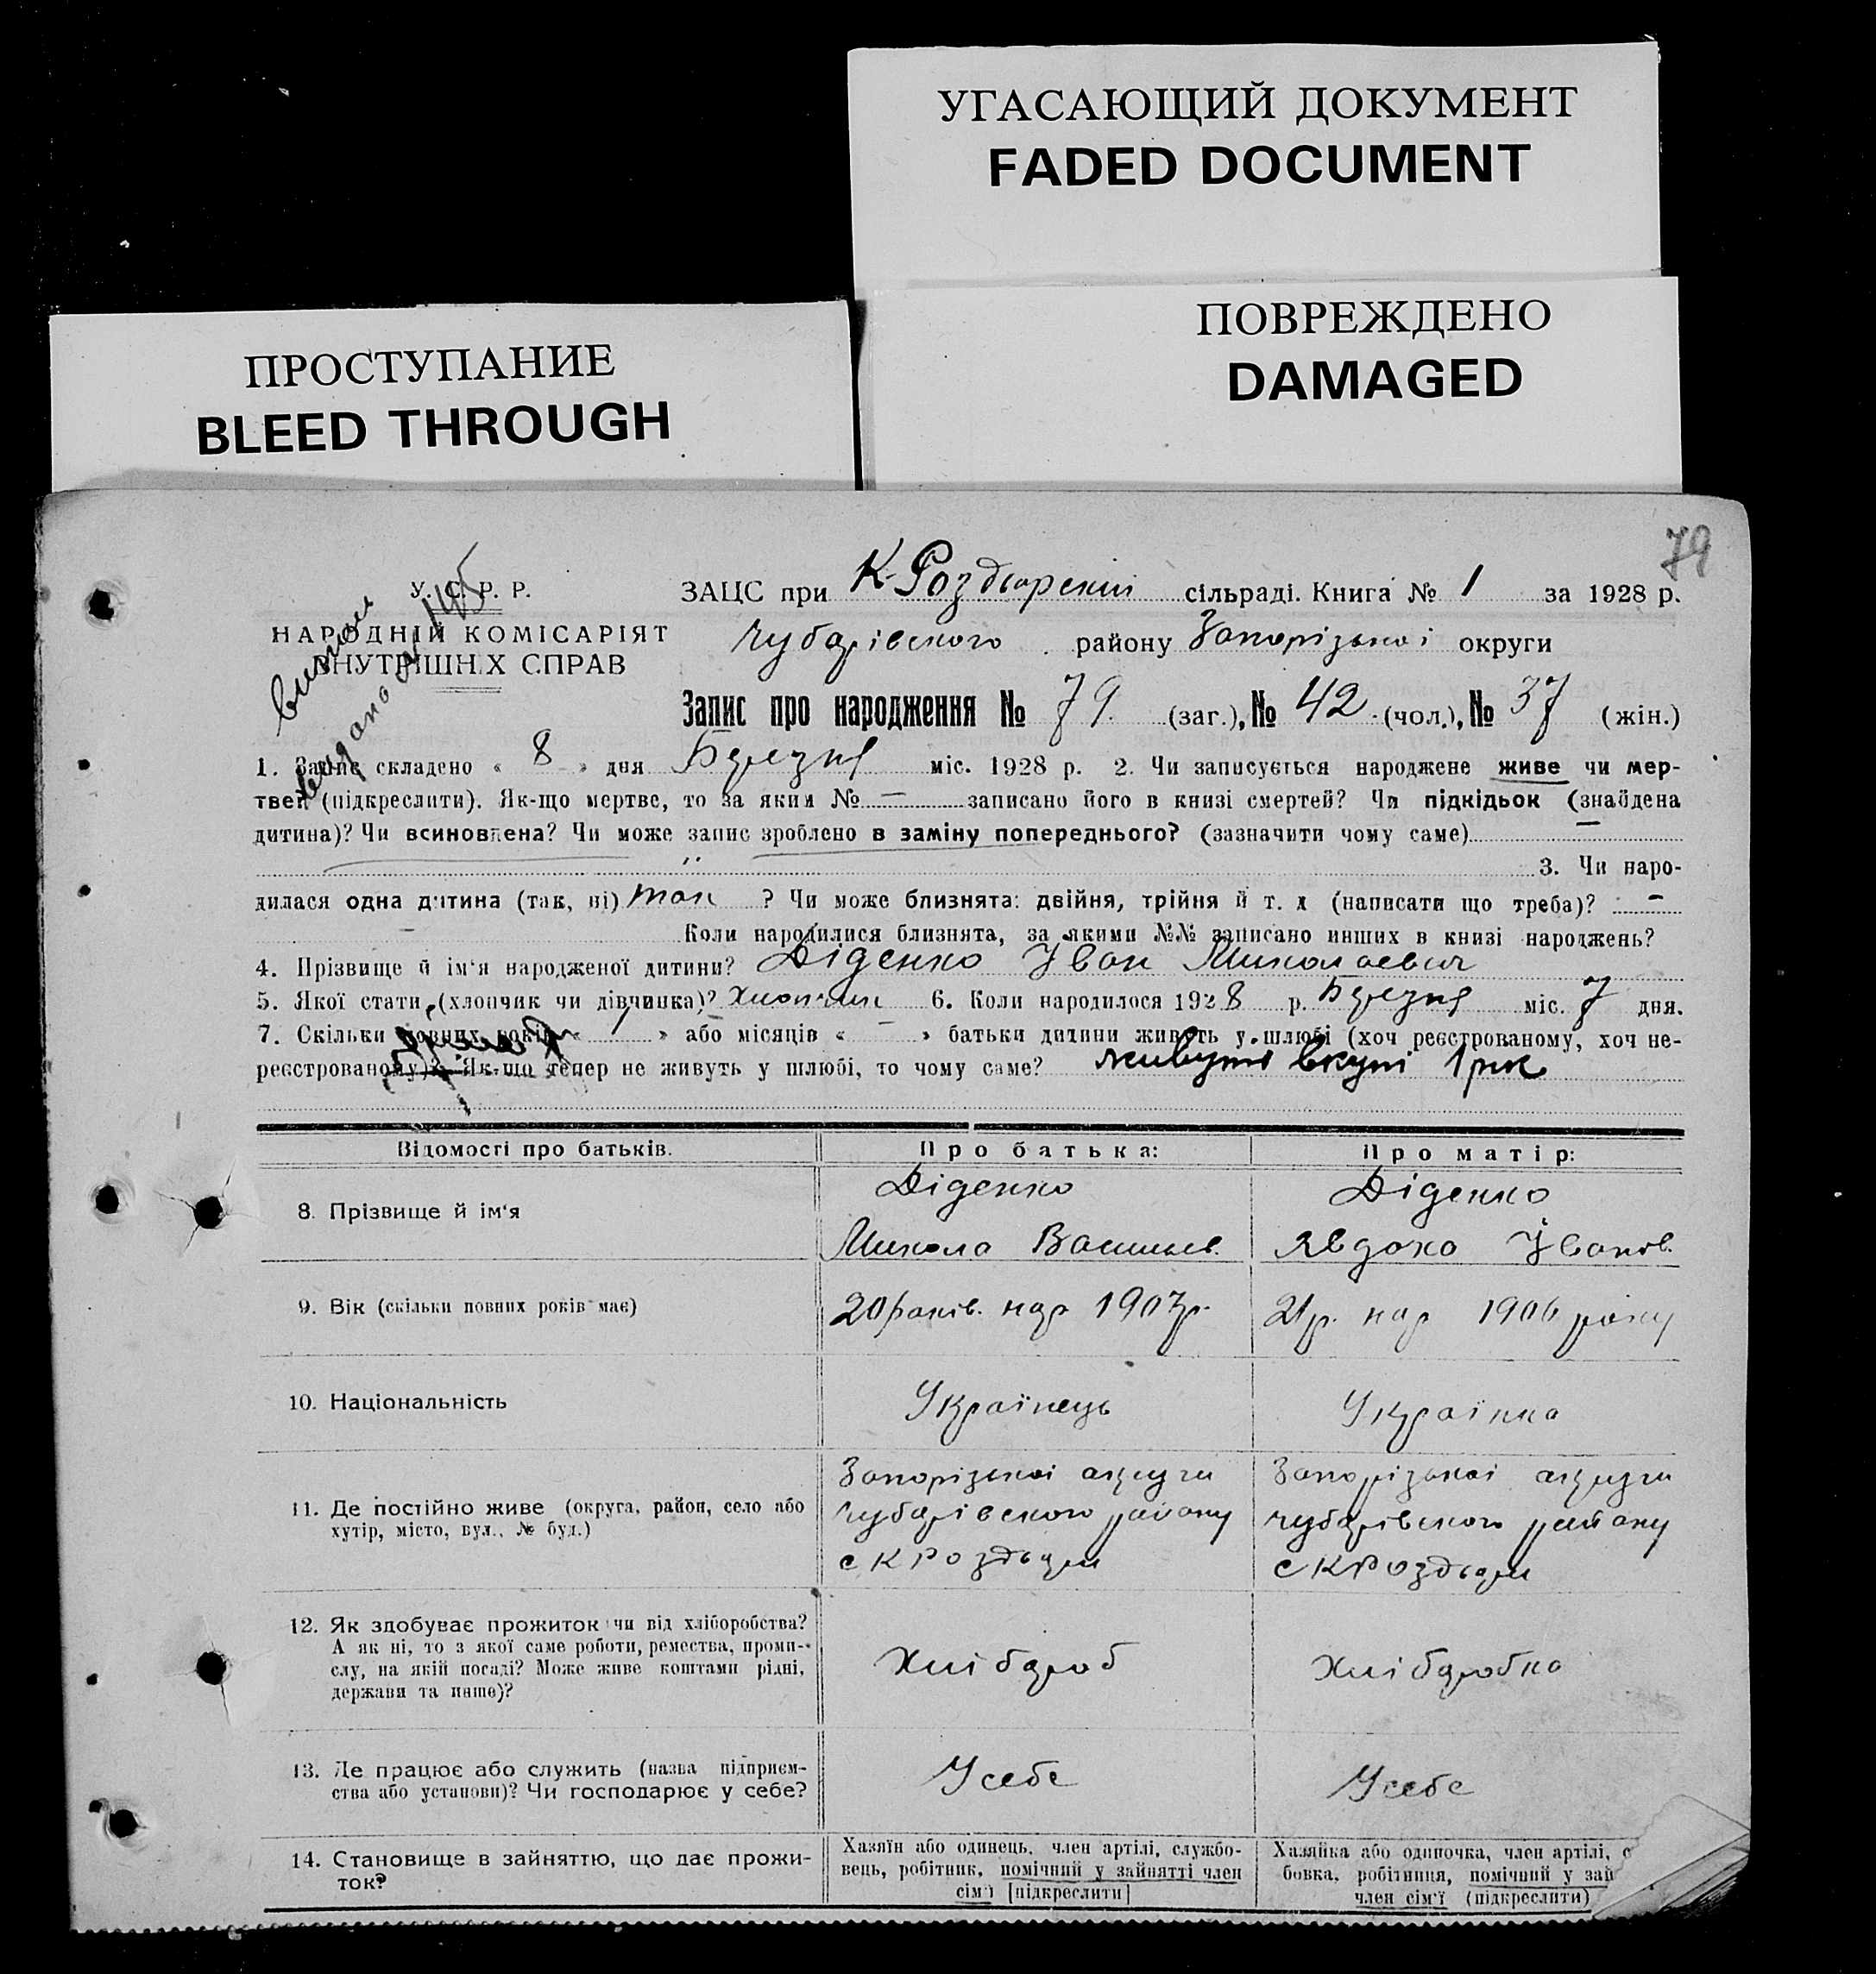 УГАСАЮЩИЙ ДОКУМЕНТ
FADED DOCUMENT
ПОВРЕЖДЕНО
DAMAGED
ПРОСТУПАНИЕ
BLEED THROUGH
79
У. С. Р. Р.
НАРОДНІЙ КОМІСАРІЯТ
ВНУТРІШН.Х СПРАВ
видано
ЗАЦС при К-Роздорській сільраді. Книга № 1 за 1928 р.
Чубарівского району Запорізькоі округи
Запис про народження № 79. (заг.), № 42 (чол.), № 37 (жін.)
1. Запис складено « 8 » дня Березня міс. 1928 р. 2. Чи записується народжене живе чи мер-
тве (підкреслити). Як-що мертве, то за яким № — записано його в книзі смертей? Чи підкідьок (знайдена
дитина)? Чи всиновлена? Чи може запис зроблено в заміну попереднього? (зазначити чому саме) —
3. Чи наро-
дилася одна дитина (так, ні) так ? Чи може близнята: двійня, трійня й т. д (написати що треба)? —
— Коли народилися близнята, за якими №№ записано инших в книзі народжень?
4. Прізвище й ім'я народженої дитини? Діденко Іван Миколаевич
5. Якої стати, (хлопчик чи дівчинка)? Хлопчик 6. Коли народилося 1928 р. Березня міс. 7 дня.
7. Скільки повних років « 1 » або місяців « — » батьки дитини живуть у шлюбі (хоч реєстрованому, хоч не-
реєстрованому)? Як-що тепер не живуть у шлюбі, то чому саме? живуть вкупі 1 рік
Відомості про батьків. Про батька: Про матір:
8. Прізвище й ім'я
Діденко
Микола Васильев.
Діденко
Явдоха Іванів.
9. Вік (скільки повних років має)
20 років. нар 1907р.
21р. нар 1906 року
10. Національність
Українець
Українка
11. Де постійно живе (округа, район, село або
хутір, місто, вул., № буд.)
Запорізькоі округи
Чубарівского району
с К Роздори
Запорізькоі округи
Чубарівского району
с К Роздори
12. Як здобуває прожиток чи від хліборобства?
А як ні, то з якої саме роботи, ремества, проми-
слу, на якій посаді? Може живе коштами рідні,
держави та инше)?
Хлібороб
Хліборобка
13. Де працює або служить (назва підприєм-
ства або установи)? Чи господарює у себе?
У себе
У себе
14. Становище в зайняттю, що дає прожи-
ток?
Хазяїн або одинець, член артілі, службо-
вець, робітник, помічний у зайнятті член
сім'ї [підкреслити]
Хазяйка або одиночка, член артілі, с
бовка, робітниця, помічний у зай
член сім'ї (підкреслити)